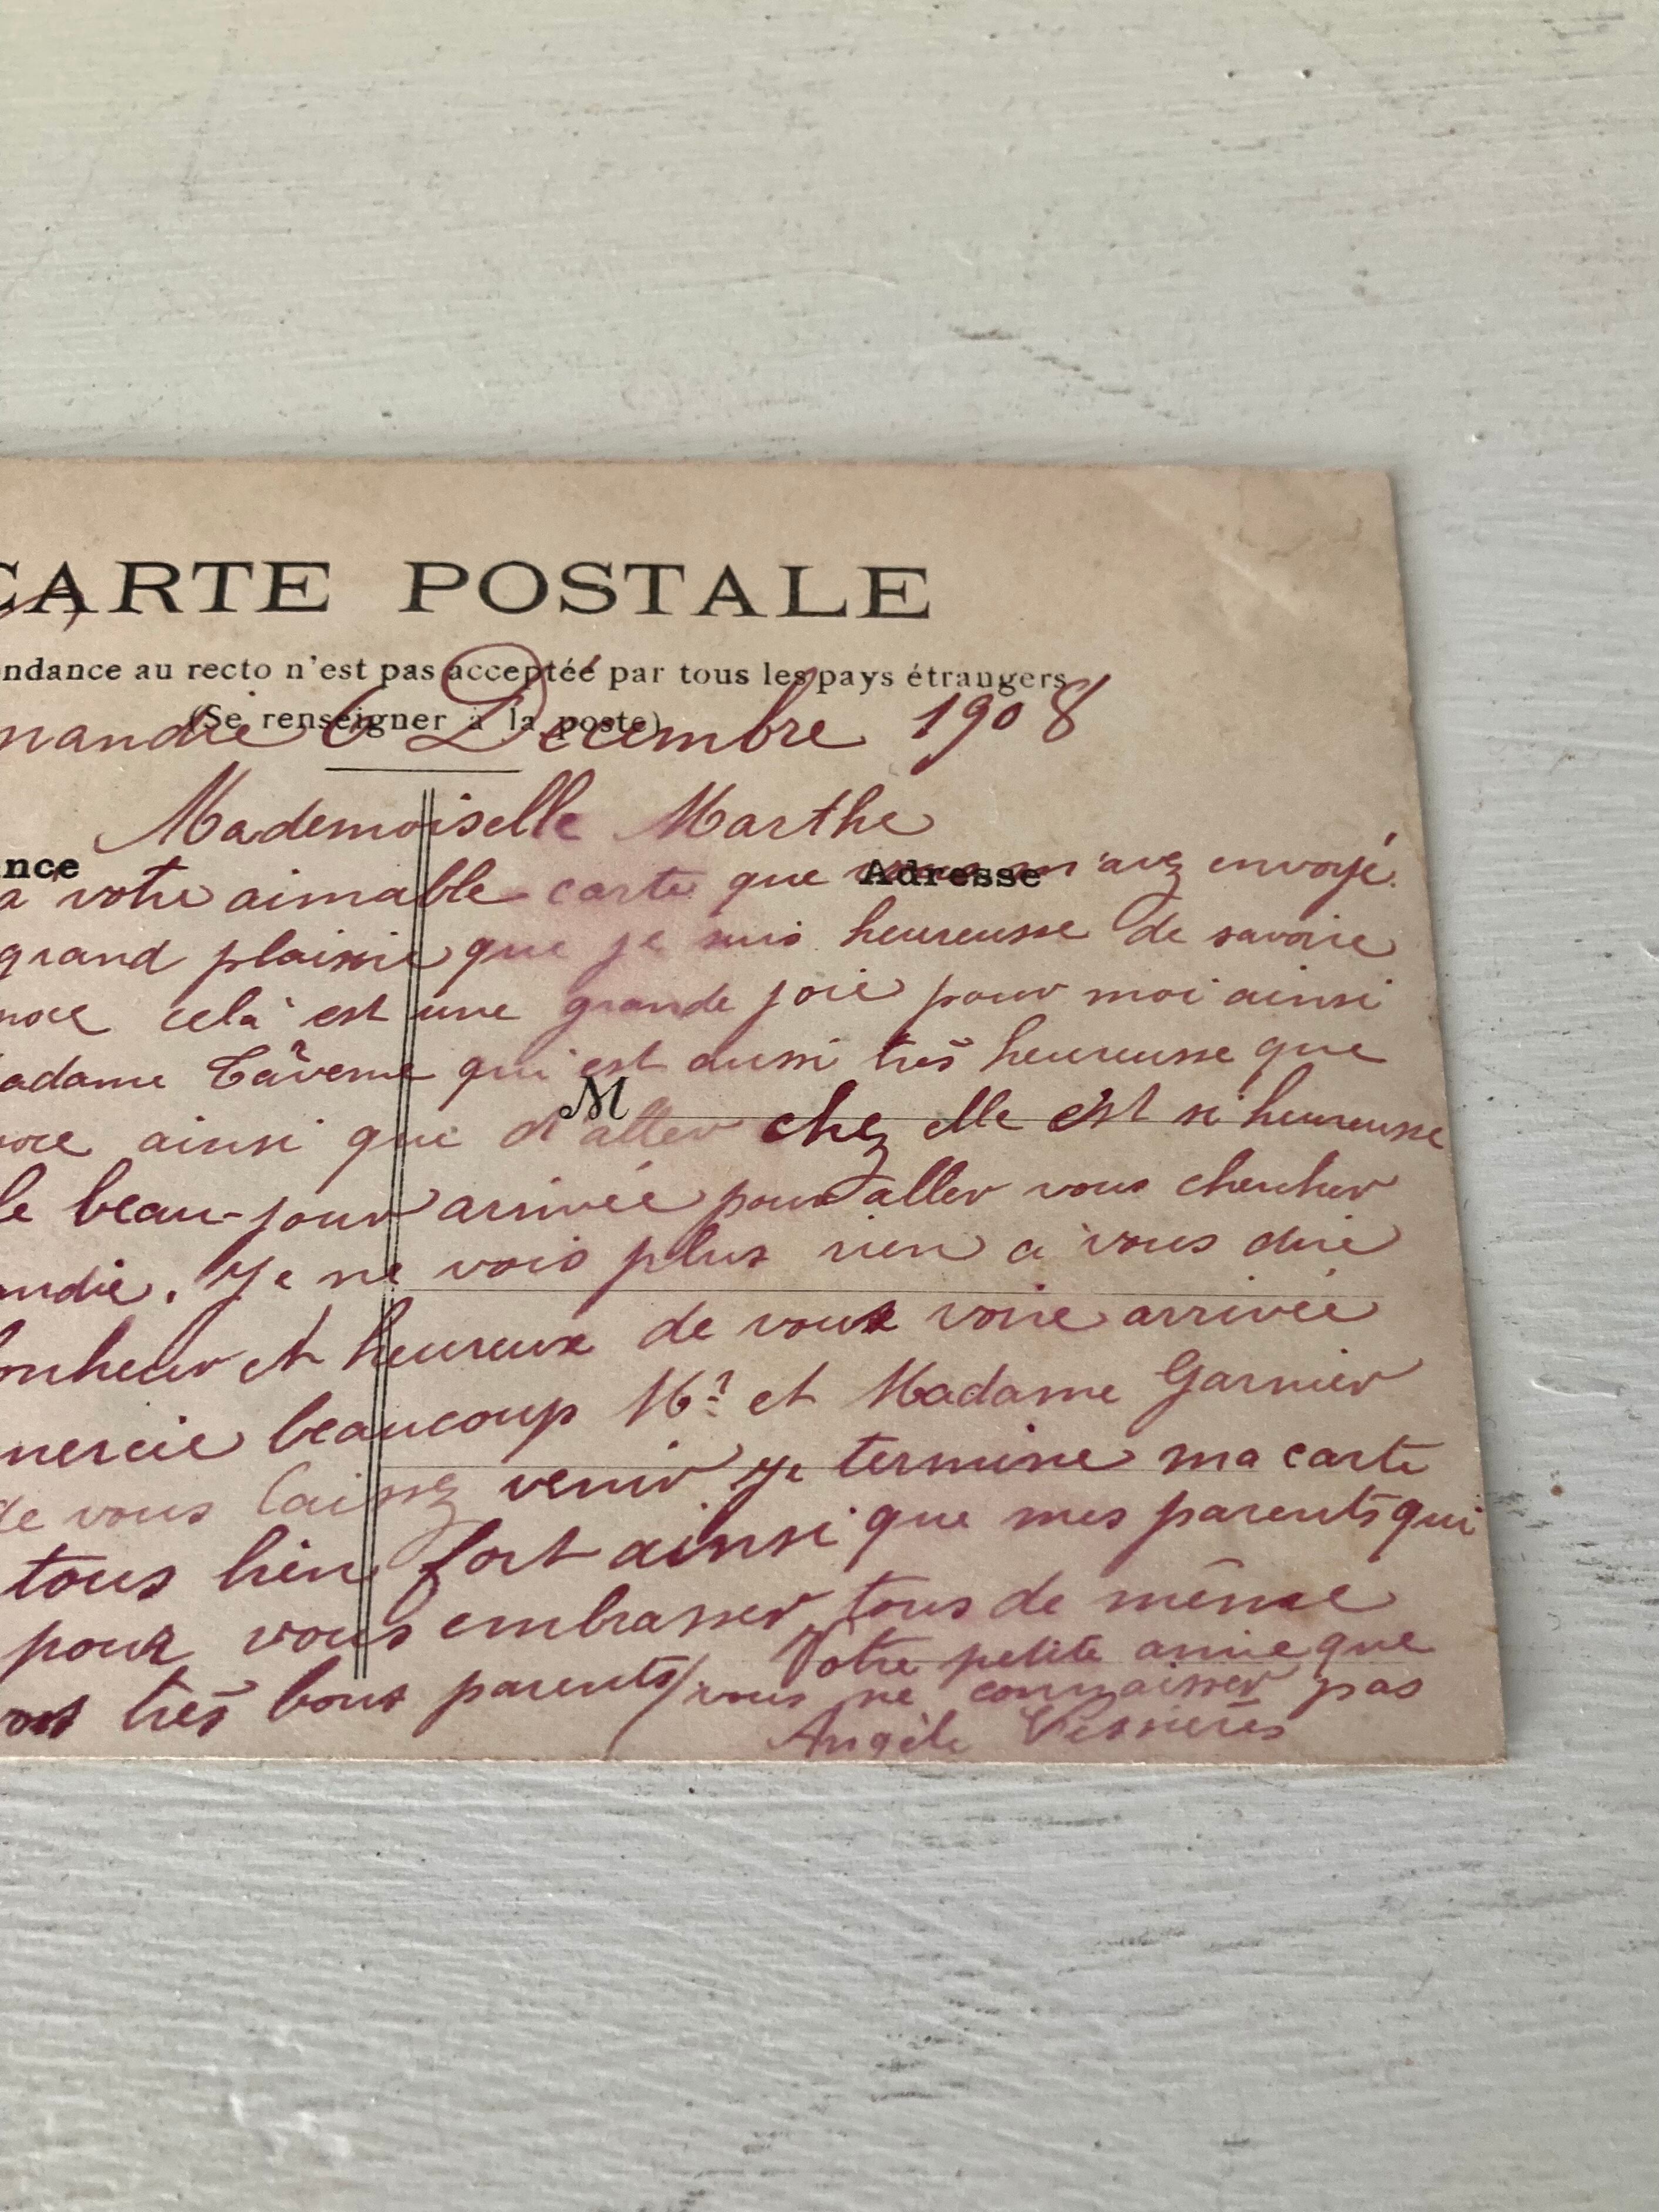 CARTE POSTALE
ndance au recto n'est pas acceptée par tous les pays étrangers
(Se renseigner à la poste)
mandie 6 Decembre 1908
Mademoiselle Marthe
nce
Adresse
a votre aimable carte que vous m'avez envoyé.
grand plaisir que je suis heureusse de savoire
celà est une grande joie pour moi ainsi
adame Tâverne qui est aussi très heureusse que
M
ainsi que d'aller chez elle est si heureusse
le beau-jour arrivée pour aller vous chercher
ndie. Je ne vois plus rien a vous dire
onheur et heureux de vous voire arrivée
mercie beaucoup Mr et Madame Garnier
de vous laissez venir Je termine ma carte
tous bien fort ainsi que mes parents qui
pour vous embrasser tous de même
très bons parents/
Votre petite amie que
vous ne connaisser pas
Angèle